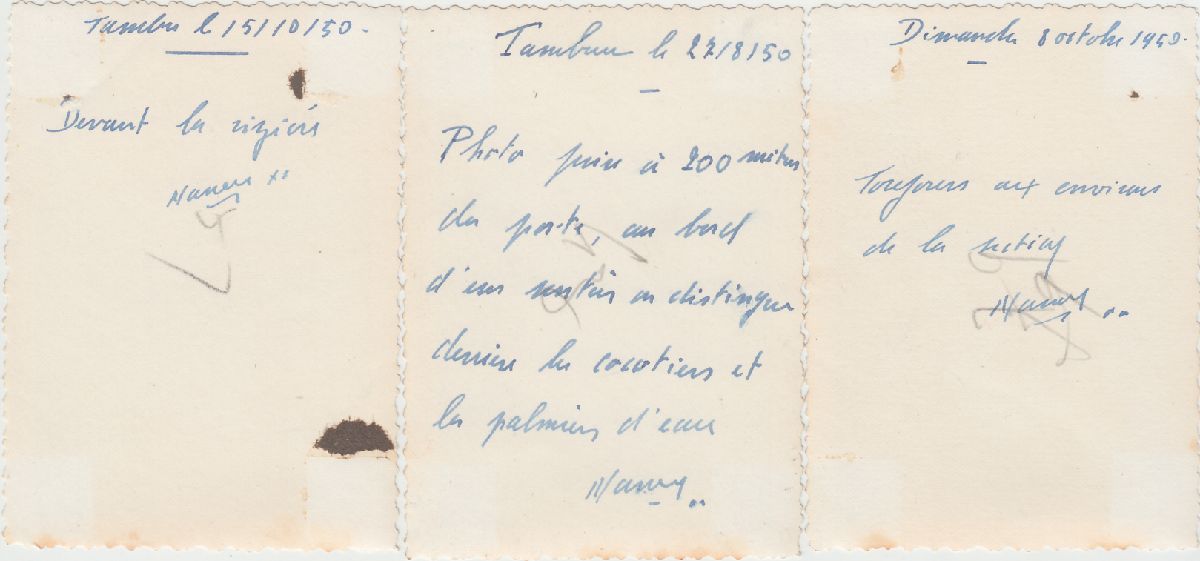 Tambu le 15/10/50.
Devant la rizière
Tambuu le 27/8/50
Photo prise à 200 mètres
du poste, au bord
d'un sentier on distingue
derrière les cocotiers et
les palmiers d'eau
Dimanche 8 octobre 1950.
Toujours aux environs
de la